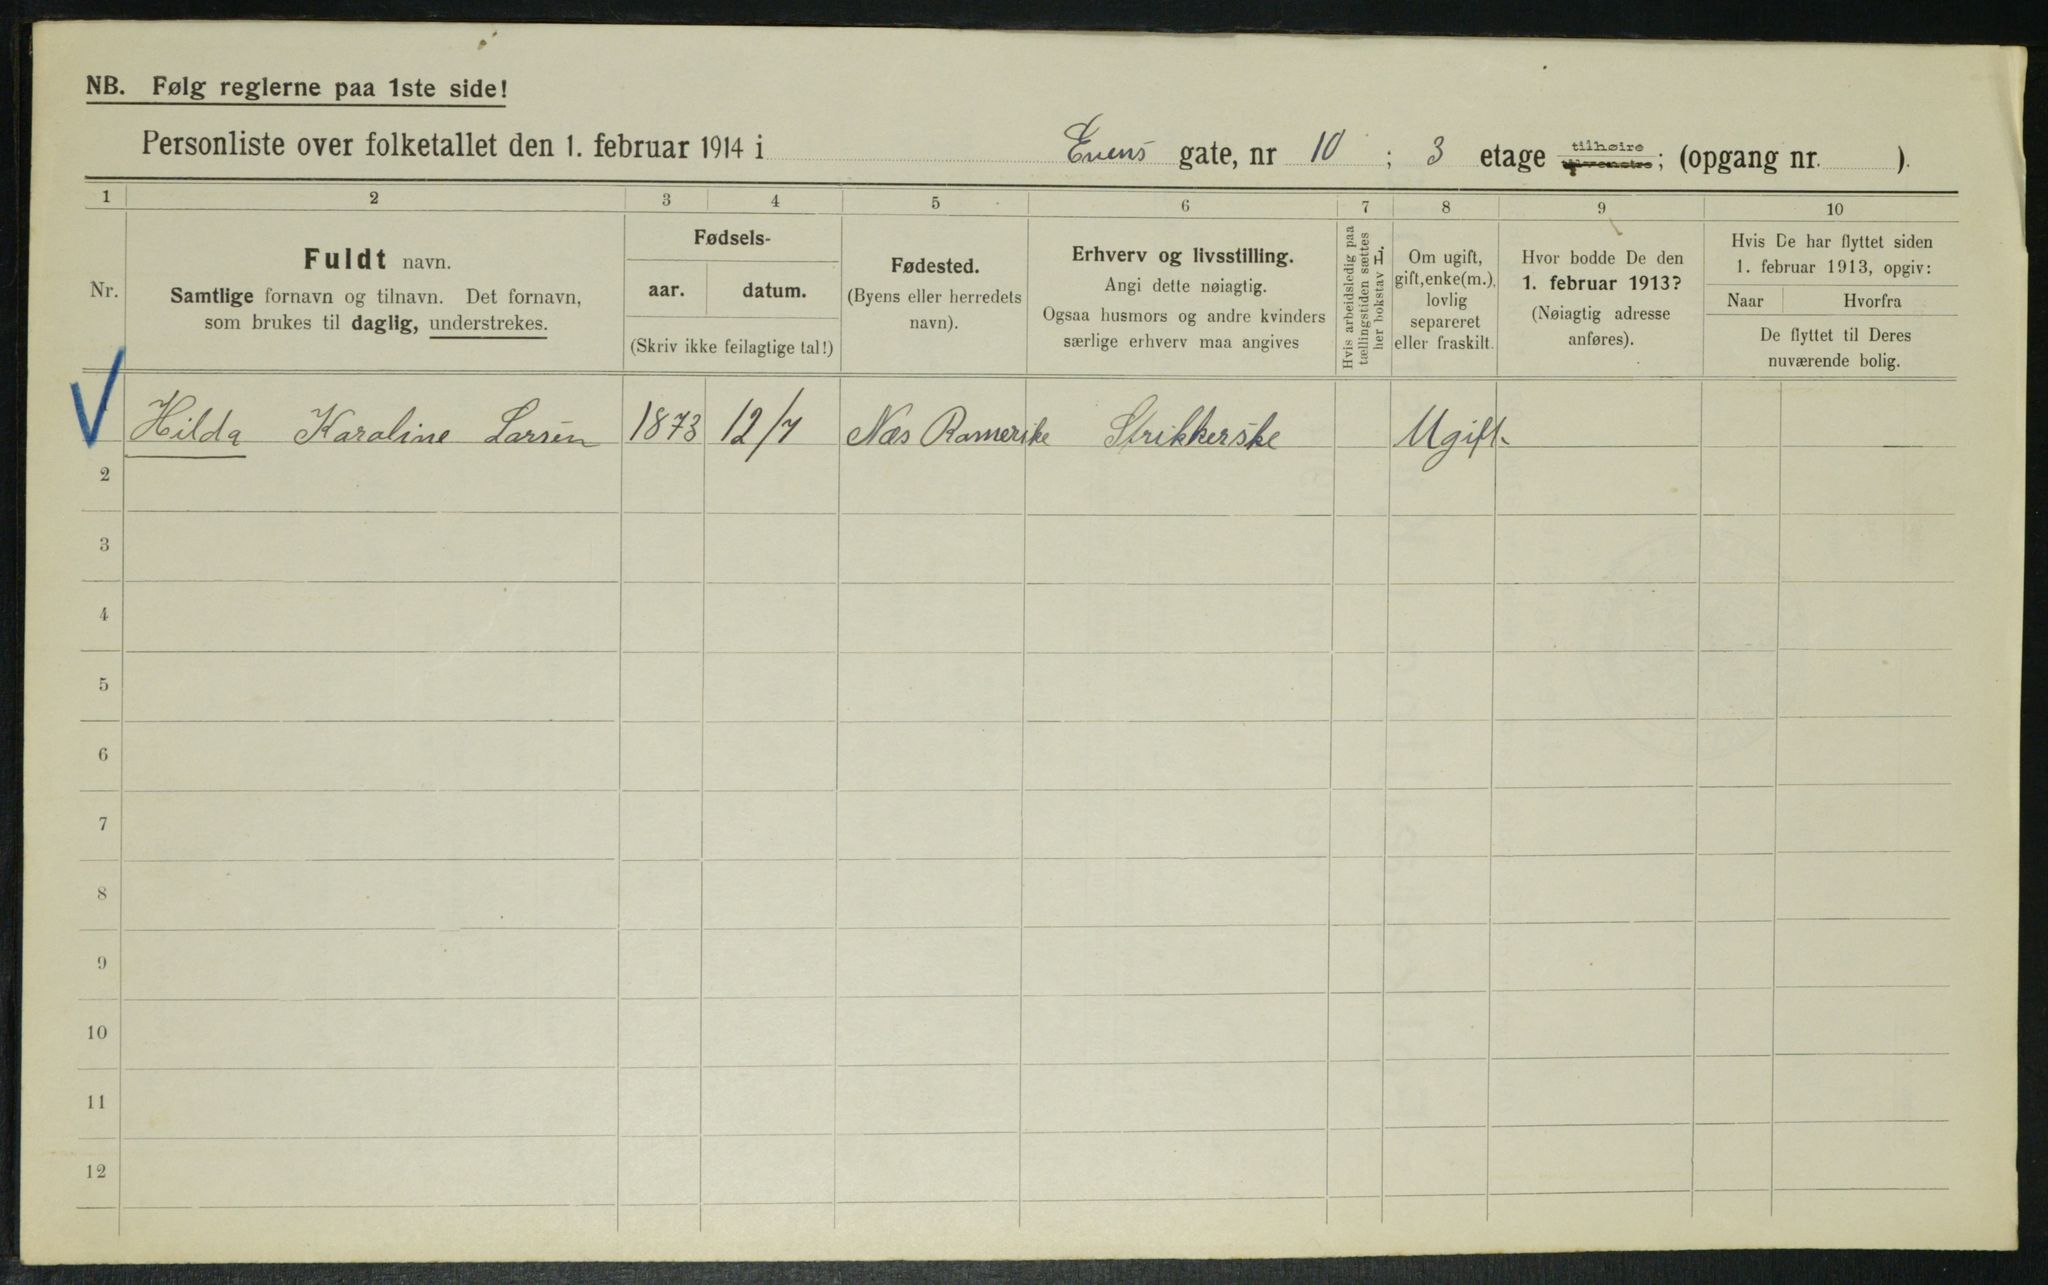 NB. Følg reglerne paa 1ste side!
Personliste over folketallet den 1. februar 1914 i Evens gate, nr 10 ; 3 etage tilhøire tilvenstre; (opgang nr. ).
1 2 3 4 5 6 7 8 9 10
Nr.
Fuldt navn.
Samtlige fornavn og tilnavn. Det fornavn,
som brukes til daglig, understrekes.
Fødsels-
aar. datum.
(Skriv ikke feilagtige tal!)
Fødested.
(Byens eller herredets
navn).
Erhverv og livsstilling.
Angi dette nøiagtig.
Ogsaa husmors og andre kvinders
særlige erhverv maa angives
Hvis arbeidsledig paa
tællingstiden sættes
her bokstav L.
Om ugift,
gift, enke(m.),
lovlig
separeret
eller fraskilt.
Hvor bodde De den
1. februar 1913?
(Nøiagtig adresse
anføres).
Hvis De har flyttet siden
1. februar 1913, opgiv:
Naar Hvorfra
De flyttet til Deres
nuværende bolig.
Hilda Karoline Larsen 1873 12/7 Næs Romerike Strikkerske Ugift
2
3
4
5
6
7
8
9
10
11
12